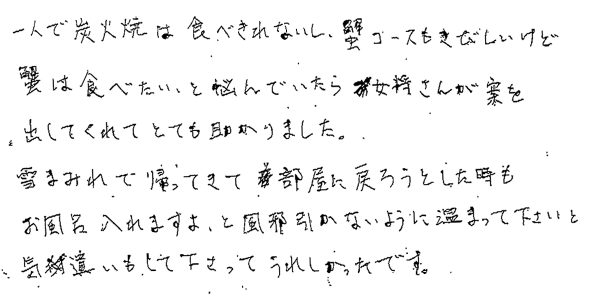 一人で炭火焼は食べきれないし、蟹コースもきびしいけど
蟹は食べたい、と悩んでいたら女将さんが案を
出してくれてとても助かりました。
雪まみれで帰ってきて部屋に戻ろうとした時も
お風呂入れますよ、と風邪引かないように温まって下さいと
気遣いもして下さってうれしかったです。